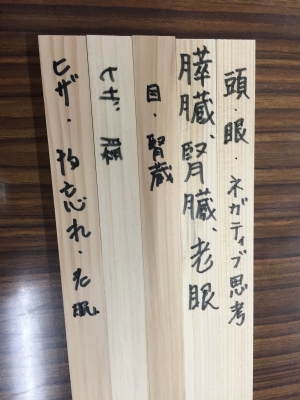 頭・眼・ネガティブ思考
膵臓、腎臓、老眼
目・腎蔵
ヒザ、
ヒザ・物忘れ・老眼